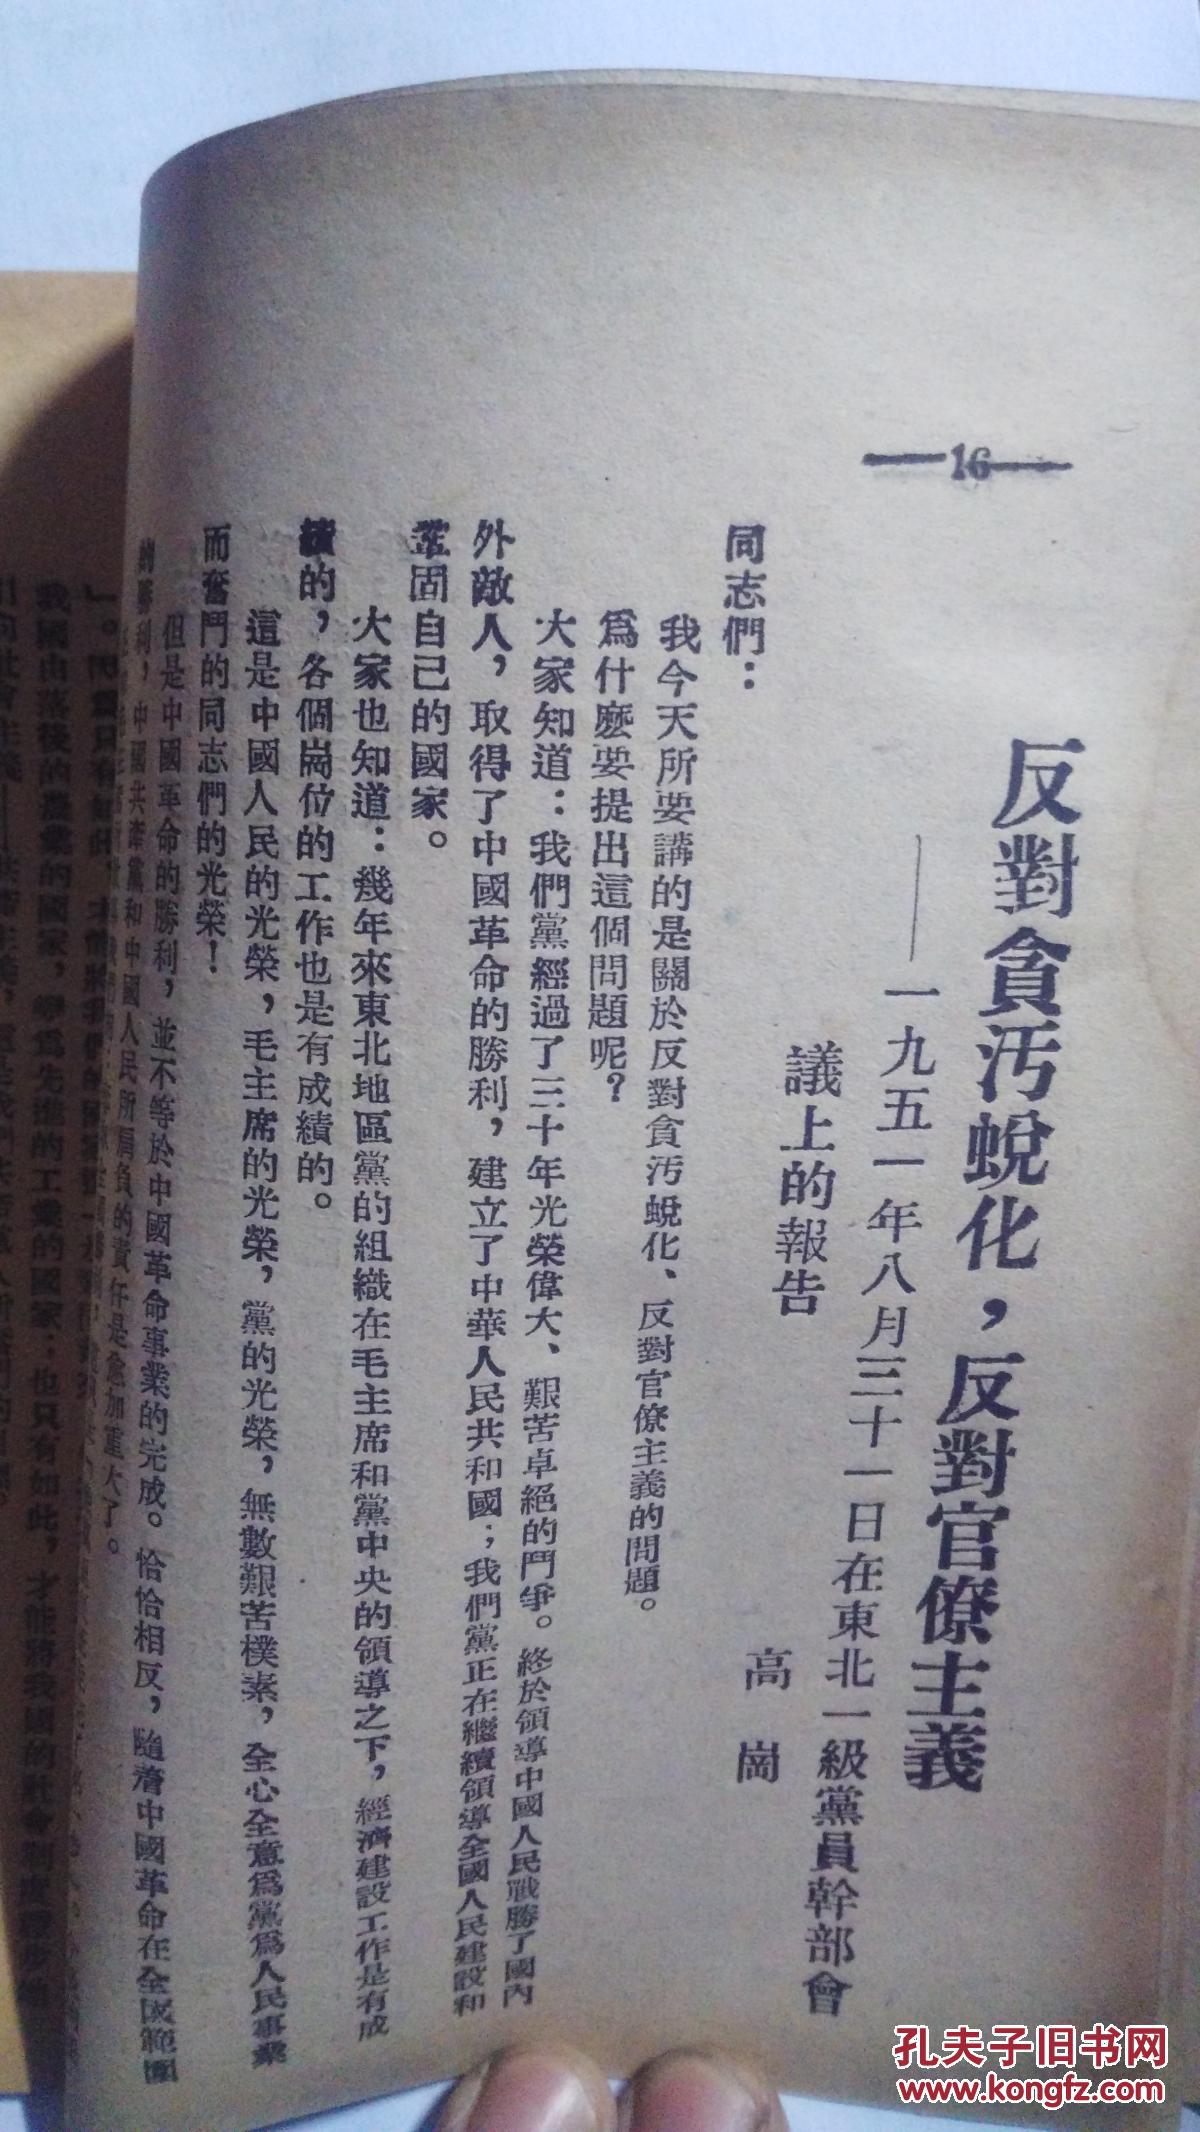 —16—
反對貪污蛻化，反對官僚主義
——一九五一年八月三十一日在東北一級黨員幹部會
議上的報告
高崗
同志們：
我今天所要講的是關於反對貪污蛻化、反對官僚主義的問題。
爲什麽要提出這個問題呢？
大家知道：我們黨經過了三十年光榮偉大、艱苦卓絕的鬥爭。終於領導中國人民戰勝了國內
外敵人，取得了中國革命的勝利，建立了中華人民共和國；我們黨正在繼續領導全國人民建設和
鞏固自己的國家。
大家也知道：幾年來東北地區黨的組織在毛主席和黨中央的領導之下，經濟建設工作是有成
績的，各個崗位的工作也是有成績的。
這是中國人民的光榮，毛主席的光榮，黨的光榮，無數艱苦樸素，全心全意爲黨爲人民事業
而奮鬥的同志們的光榮！
但是中國革命的勝利，並不等於中國革命事業的完成。恰恰相反，隨着中國革命在全國範圍
的勝利，中國共產黨和中國人民所肩負的責任是愈加重大了。
我國由落後的農業的國家，變爲先進的工業的國家；也只有如此，才能將我國的社會制度
孔夫子旧书网
www.kongfz.com